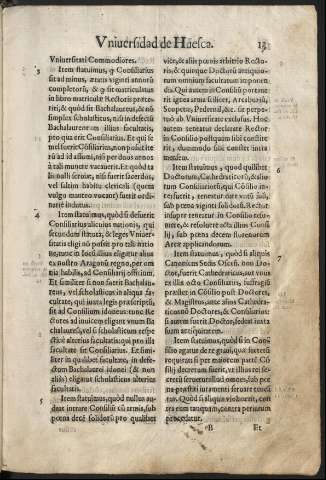 Vniuersidad de Huesca. 13
Vniuersitati Commodiores.
3 Item statuimus, ꝙ Consiliarius
sit ad minus, ætatis viginti annorū
completorū, & ꝙ sit matriculatus
in libro matriculæ Rectoris præte-
riti; & quòd sit Bachalaureus, & nō
simplex scholasticus, nisi in defectū
Bachalaureorum illius facultatis,
pro qua erit Consiliarius. Et qui se
mel fuerit Cōsiliarius, non possit ite
rū ad id assumi, nisi per duos annos
à tali munere vacauerit. Et Reli-
giosus nullus, nisi fuerit sacerdos,
vel saltim habitu clericali (quem
vulgo manteo vocant) fuerit ordi-
nariè indutus.
4 Item statuimus, quòd si defuerit
Consiliarius alicuius nationis, qui
secundum statuta, & leges Vniuer-
sitatis eligi nō possit pro tali natio
ne, tunc in locū illius eligatur alius
ex nostro Aragonū regno, per om
nia habilis, ad Consiliarij officium.
Et similiter si non fuerit Bachalau-
reus, vel scholasticus in aliqua fa-
cultate, qui iuxta legis præscriptū,
sit ad Consilium idoneus tunc Re-
ctores ad inuicem eligant vnum Ba
chalaureū, vel si fuerit respectiuè
scholasticū alterius facultatis; qui pro illa
facultate sit Consiliarius. Et simi-
liter in quolibet facultate, in defe-
ctum Bachalaurei idonei (& non
aliàs) eligatur scholasticus alterius
facultatis.
5 Item statuimus, quòd nullus au-
deat intrare Consiliū cū armis, sub
pœna decē solidorū pro qualibet
vice, & alijs pœnis arbitrio Recto-
ris; & quòd quicunque Doctorū antiquio-
rum omnium facultatum iniungat
id. Qui autem in Consiliū portaue-
rit ignea arma scilicet, Arcabuzū,
Scopetas, Pedernal, &c. sit perpe-
tuò ab Vniuersitate exclusus. Hoc
autem teneatur declarare Rector
in Consilio postquam sibi consite-
rit, dummodo sibi constet intra
mensem.
6 Item statuimus, quòd quilibet
Doctorum, Cathedraticorū, & alio-
rum Consiliariorū, qui Consilio in-
terfuerit, teneatur dare votū suū,
sub pœna viginti solidorū. Rector
insuper teneatur in Consilio resu-
mere, & resoluere acta illius Consi
lij, sub pœna decem florenorum
Arcæ applicandorum.
7 Item statuimus, quòd si aliquis
Canonicus Sedis Oscen. non Do-
ctor, fuerit Cathedraticus, aut vnus
ex illis octo Consultatis, suffragiū
præstet in Cōsilio post Doctores,
& Magistros, ante alios Cathedra-
ticos nō Doctores, & Consiliarios:
si autem fuerit Doctor, sedeat iuxta
suam antiquitatem.
8 Item statuimus, quòd si in Con-
silio agatur de re graui, quæ secretū
requirat si per maiorem partē Cō
silij decretum fuerit, vt illius rei se-
creti secretū illud omnes, sub pœ-
na præstiti iuramenti secretū tenea-
tur. Quòd si aliquis violauerit, con-
tra eum tanquam, contra periurum
procedatur.
B Et